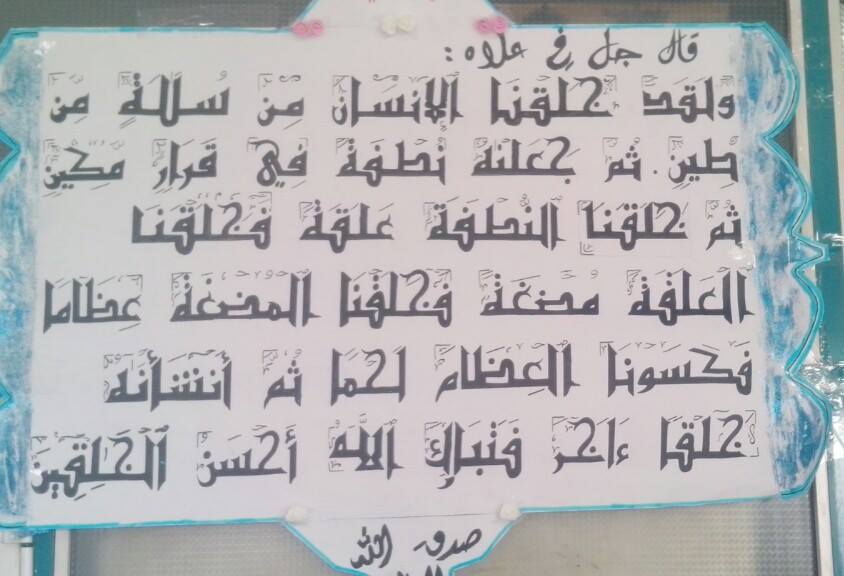 قال جل في علاه :
ولقد خلقنا الإنسان من سلالة من
طين . ثم جعلنه نطفة في قرار مكين
ثم خلقنا النطفة علقة فخلقنا
العلقة مضغة فخلقنا المضغة عظاما
فكسونا العظام لحما ثم أنشأنه
خلقا ءاخر فتبارك الله أحسن الخلقين
صدق الله